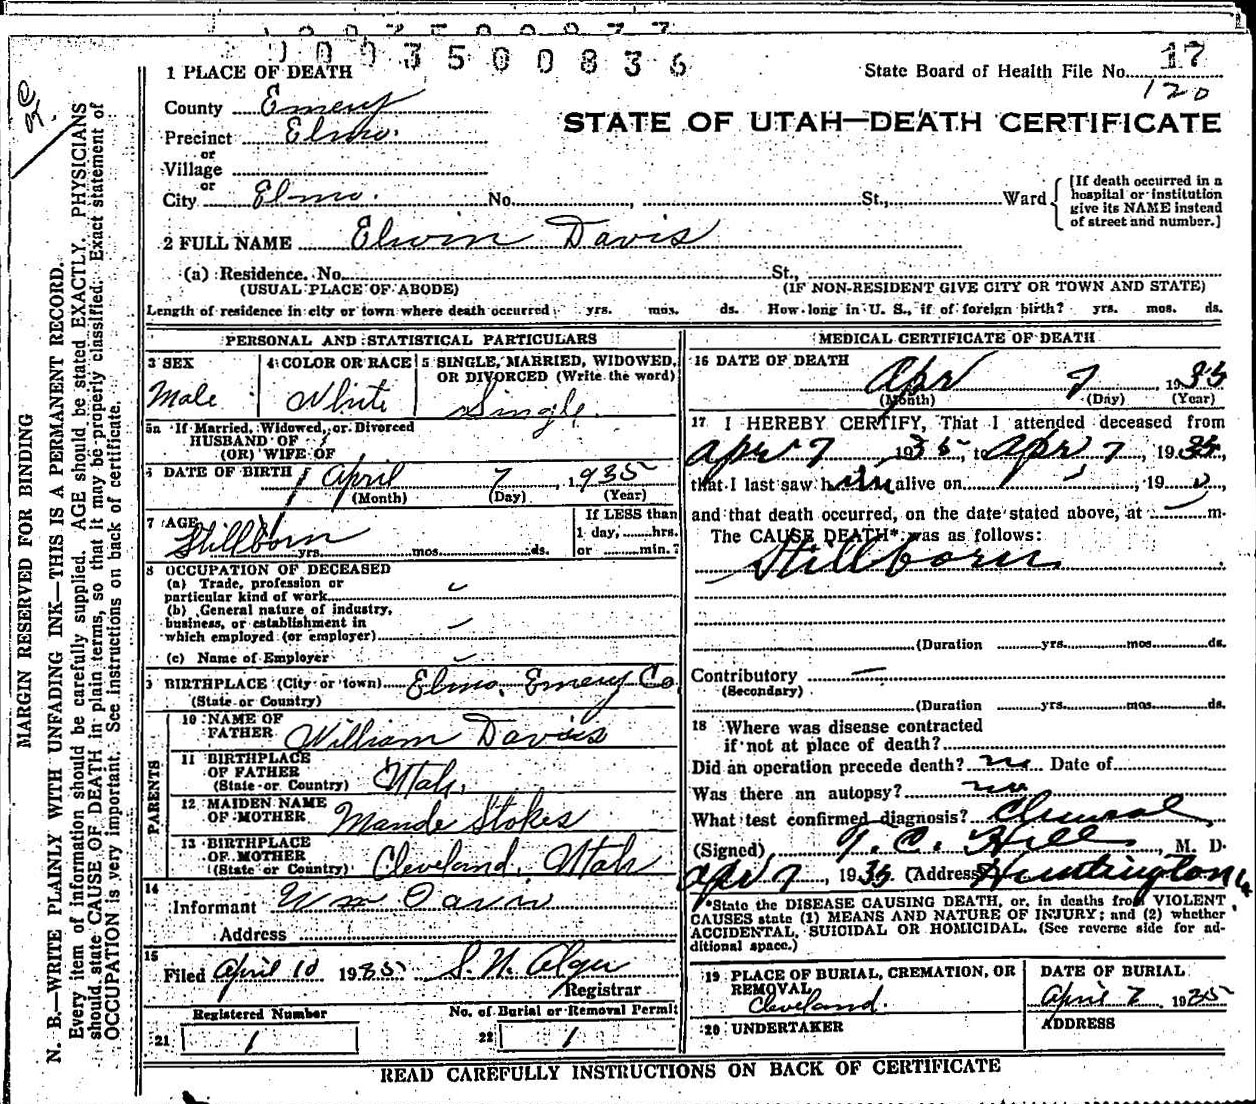 1 0 0 3 5 0 0 8 3 6
1 PLACE OF DEATH
State Board of Health File No. 17
120
County Emery
STATE OF UTAH—DEATH CERTIFICATE
Precinct Elmo.
or
Village
or
City Elmo. No. , St., Ward
[If death occurred in a hospital or institution give its NAME instead of street and number.]
2 FULL NAME Elwin Davis
(a) Residence. No. St.,
(USUAL PLACE OF ABODE) (IF NON-RESIDENT GIVE CITY OR TOWN AND STATE)
Length of residence in city or town where death occurred yrs. mos. ds. How long in U. S., if of foreign birth? yrs. mos. ds.
PERSONAL AND STATISTICAL PARTICULARS
3 SEX
Male
4 COLOR OR RACE
White
5 SINGLE, MARRIED, WIDOWED, OR DIVORCED (Write the word)
Single.
5a If Married, Widowed, or Divorced
HUSBAND OF
(OR) WIFE OF
6 DATE OF BIRTH April 7, 1935
(Month) (Day) (Year)
7 AGE
Stillborn yrs. mos. ds.
If LESS than
1 day, hrs.
or min.?
8 OCCUPATION OF DECEASED
(a) Trade, profession or
particular kind of work
(b) General nature of industry,
business, or establishment in
which employed (or employer)
(c) Name of Employer
9 BIRTHPLACE (City or town) Elmo, Emery Co
(State or Country)
PARENTS
10 NAME OF
FATHER William Davis
11 BIRTHPLACE
OF FATHER
(State or Country) Utah.
12 MAIDEN NAME
OF MOTHER Maude Stokes
13 BIRTHPLACE
OF MOTHER
(State or Country) Cleveland, Utah
14
Informant Wm Davis
Address
15
Filed April 10 1935 S. N. Alger
Registrar
Registered Number
21 1
No. of Burial or Removal Permit
22 1
MEDICAL CERTIFICATE OF DEATH
16 DATE OF DEATH
Apr 7 1935
(Month) (Day) (Year)
17 I HEREBY CERTIFY, That I attended deceased from
Apr 7, 1935, to Apr 7, 1935,
that I last saw him alive on , 19 ,
and that death occurred, on the date stated above, at m.
The CAUSE DEATH* was as follows:
Stillborn
(Duration yrs. mos. ds.
Contributory
(Secondary)
(Duration yrs. mos. ds.
18 Where was disease contracted
if not at place of death?
Did an operation precede death? no Date of
Was there an autopsy? no
What test confirmed diagnosis?
(Signed) T. C. Hill, M. D.
Apr 7, 1935 (Address Huntington
*State the DISEASE CAUSING DEATH, or, in deaths from VIOLENT
CAUSES state (1) MEANS AND NATURE OF INJURY; and (2) whether
ACCIDENTAL, SUICIDAL OR HOMICIDAL. (See reverse side for ad-
ditional space.)
19 PLACE OF BURIAL, CREMATION, OR
REMOVAL
Cleveland.
DATE OF BURIAL
April 7 1935
20 UNDERTAKER
ADDRESS
READ CAREFULLY INSTRUCTIONS ON BACK OF CERTIFICATE
MARGIN RESERVED FOR BINDING
N. B.—WRITE PLAINLY WITH UNFADING INK—THIS IS A PERMANENT RECORD.
Every item of information should be carefully supplied. AGE should be stated EXACTLY. PHYSICIANS
should state CAUSE OF DEATH in plain terms, so that it may be properly classified. Exact statement of
OCCUPATION is very important. See instructions on back of certificate.